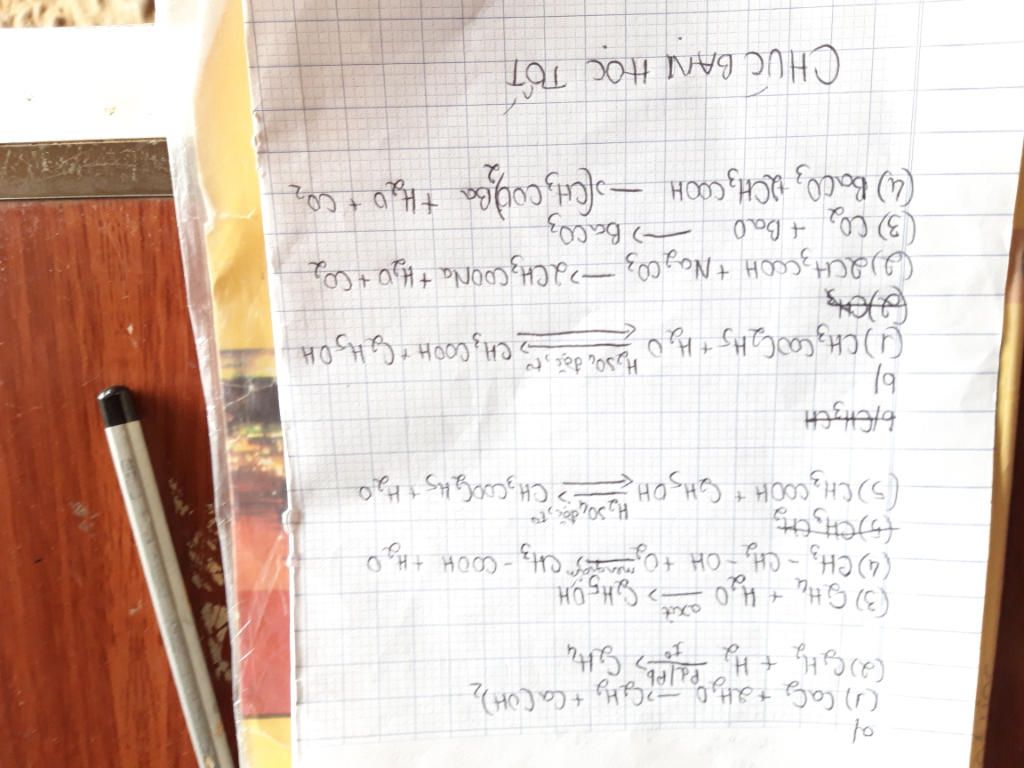 a/
(1) CaC2 + 2H2O —> C2H2 + Ca(OH)2
(2) C2H2 + H2 Pd/Pb t° —> C2H4
(3) C2H4 + H2O axit —> C2H5OH
(4) CH3 - CH2 - OH + O2 men giấm —> CH3 - COOH + H2O
(5) CH3 CH2
(5) CH3COOH + C2H5OH H2SO4 đặc, t° ⇌ CH3COOC2H5 + H2O
b/ CH3CH
b/
(1) CH3COOC2H5 + H2O H2SO4 đặc, t° ⇌ CH3COOH + C2H5OH
(2) CH3
(2) 2CH3COOH + Na2CO3 —> 2CH3COONa + H2O + CO2
(3) CO2 + BaO —> BaCO3
(4) BaCO3 + 2CH3COOH —> (CH3COO)2Ba + H2O + CO2
CHÚC BẠN HỌC TỐT